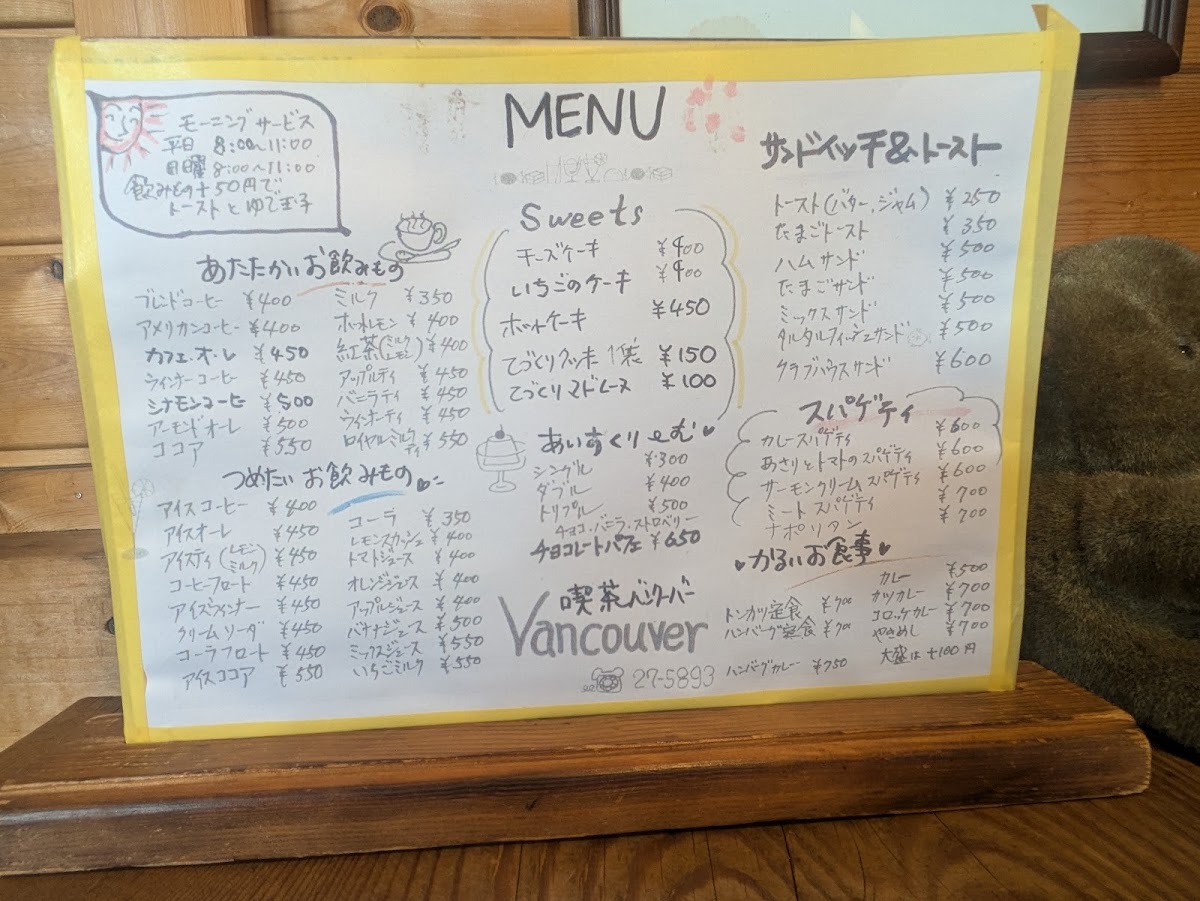 MENU
モーニングサービス
平日 8:00~11:00
日曜 8:00~11:00
飲みもの+50円で
トーストとゆで玉子
あたたかいお飲みもの
ブレンドコーヒー ¥400
アメリカンコーヒー ¥400
カフェ・オ・レ ¥450
ウィンナーコーヒー ¥450
シナモンコーヒー ¥500
アーモンドオーレ ¥500
ココア ¥550
ミルク ¥350
ホットレモン ¥400
紅茶(ミルク レモン) ¥400
アップルティ ¥450
バニラティ ¥450
ウィンナーティ ¥450
ロイヤルミルクティ ¥550
つめたいお飲みもの
アイスコーヒー ¥400
アイスオーレ ¥450
アイスティ(レモン ミルク) ¥450
コーヒーフロート ¥450
アイスウィンナー ¥450
クリームソーダ ¥450
コーラフロート ¥450
アイスココア ¥550
コーラ ¥350
レモンスカッシュ ¥400
トマトジュース ¥400
オレンジジュース ¥400
アップルジュース ¥400
バナナジュース ¥500
ミックスジュース ¥550
いちごミルク ¥550
Sweets
チーズケーキ ¥400
いちごのケーキ ¥400
ホットケーキ ¥450
てづくりクッキー1袋 ¥150
てづくりマドレーヌ ¥100
あいすくりーむ
シングル ¥300
ダブル ¥400
トリプル ¥500
チョコ・バニラ・ストロベリー
チョコレートパフェ ¥650
喫茶バンクーバー
Vancouver
27-5893
サンドイッチ&トースト
トースト(バター、ジャム) ¥250
たまごトースト ¥350
ハムサンド ¥500
たまごサンド ¥500
ミックスサンド ¥500
タルタルフィッシュサンド ¥500
クラブハウスサンド ¥600
スパゲティ
カレースパゲティ ¥600
あさりとトマトのスパゲティ ¥600
サーモンクリームスパゲティ ¥600
ミートスパゲティ ¥700
ナポリタン ¥700
かるいお食事
トンカツ定食 ¥700
ハンバーグ定食 ¥700
ハンバーグカレー ¥750
カレー ¥500
カツカレー ¥700
コロッケカレー ¥700
やきめし ¥700
大盛は+100円